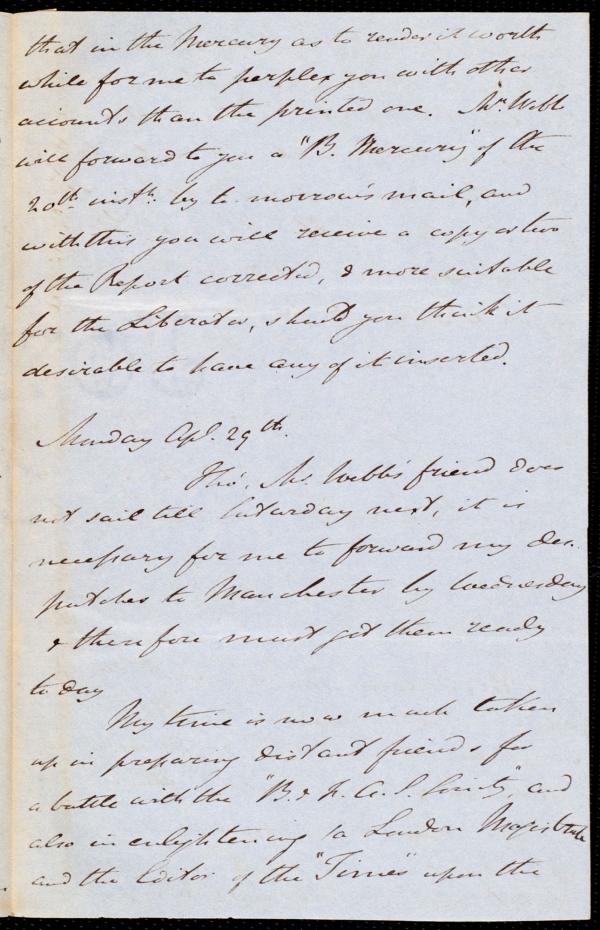 that in the Mercury as to render it worth
while for me to perplex you with other
accounts than the printed one. Mr. Webb
will forward to you a "B. Mercury" of the
20th inst. by to-morrow's mail, and
with this you will receive a copy or two
of the Report corrected, & more suitable
for the Liberator, should you think it
desirable to have any of it inserted.
Monday Apl. 29th.
Tho', Mr. Webb's friend does
not sail till Saturday next, it is
necessary for me to forward my des-
patches to Manchester by Wednesday
& therefore must get them ready
to day
My time is now much taken
up in preparing distant friends for
a battle with the "B. & F. A. S. Society", and
also in enlightening a London Magistrate
and the Editor of the "Times" upon the